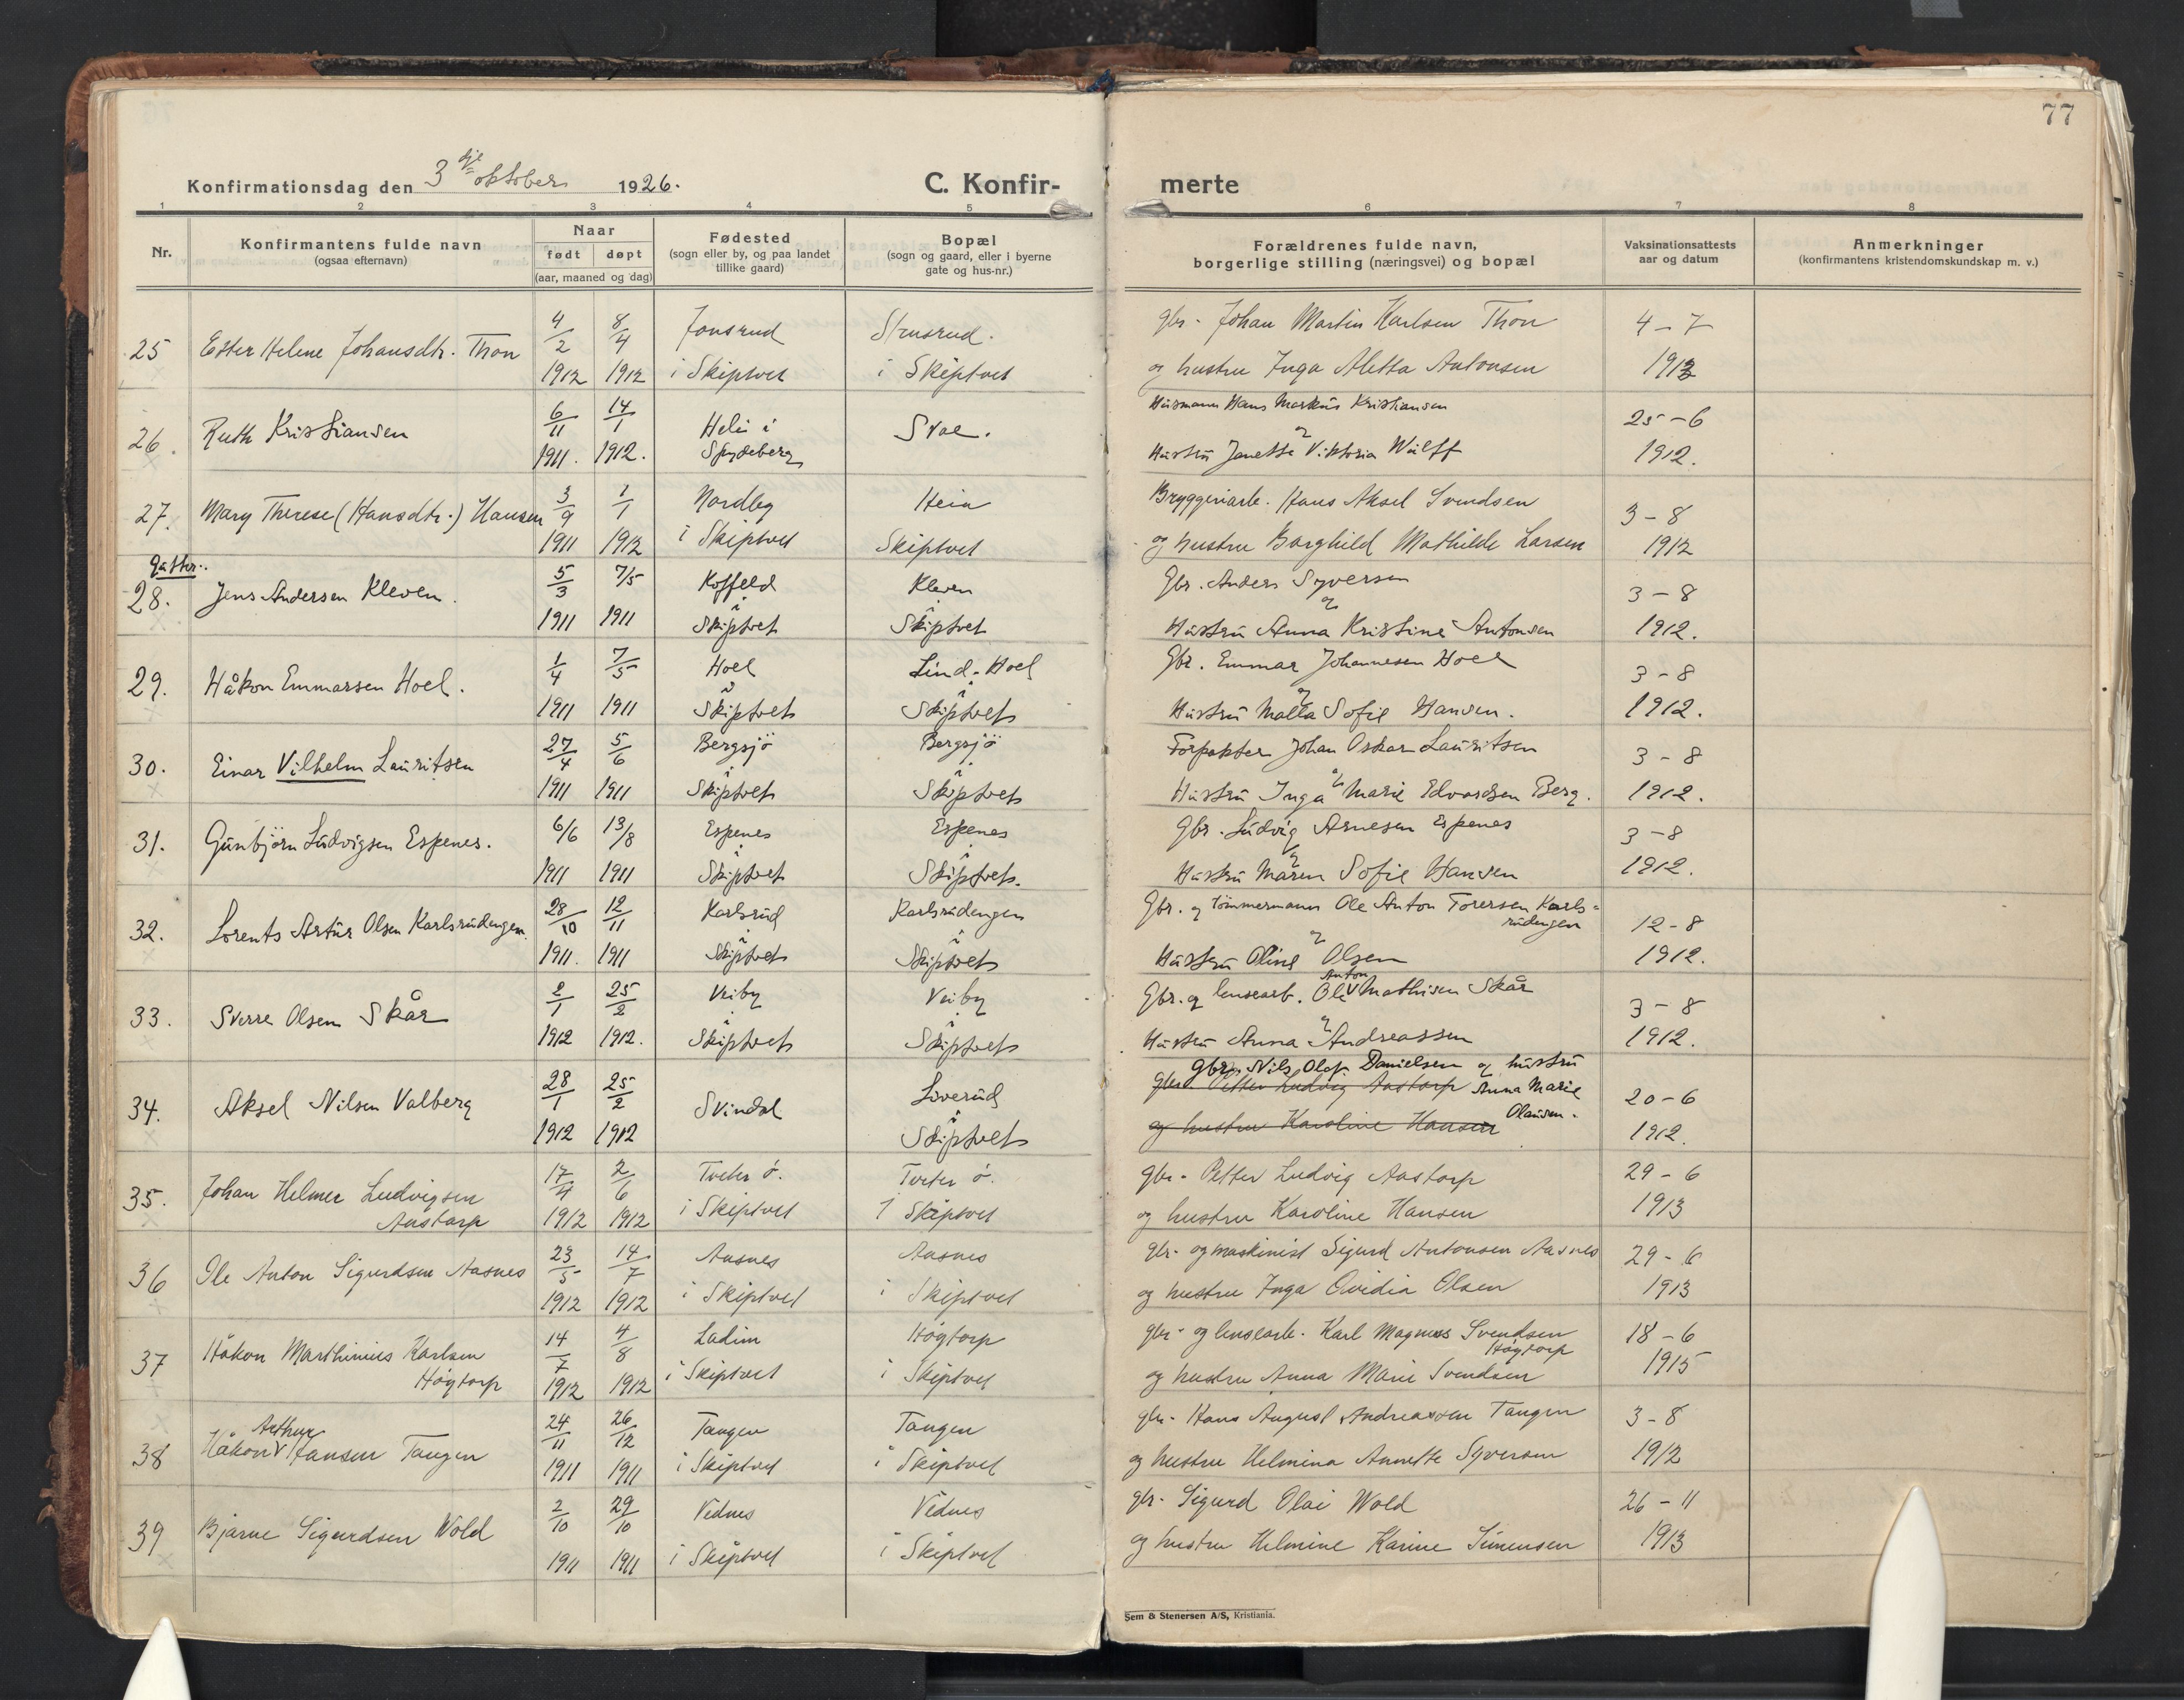 77
Konfirmationsdag den 3dje oktober 1926.
C. Konfir-
merte
1 2 3 4 5 6 7 8
Nr.
Konfirmantens fulde navn
(ogsaa efternavn)
Naar
født døpt
(aar, maaned og dag)
Fødested
(sogn eller by, og paa landet
tillike gaard)
Bopæl
(sogn og gaard, eller i byerne
gate og hus-nr.)
Forældrenes fulde navn,
borgerlige stilling (næringsvei) og bopæl
Vaksinationsattests
aar og datum
Anmerkninger
(konfirmantens kristendomskundskap m. v.)
25 Ester Helene Johansdtr. Thon 4/2 1912 8/4 1912 Jonsrud i Skiptvet Strusrud. i Skiptvet
gbr. Johan Martin Karlsen Thon 4-7
og hustru Inga Aletta Antonsen 1913
26. Ruth Kristiansen 6/11 1911. 14/1 1912. Heli i Spydeberg Svae.
Husmann Hans Markus Kristiansen 25-6
og Hustru Janette Viktoria Wulff 1912.
27. Mary Therese (Hansdtr.) Hansen 3/9 1911 1/1 1912 Nordby i Skiptvet Hein Skiptvet
Bryggeriarb. Hans Aksel Svendsen 3-8
og hustru Borghild Mathilde Larsen 1912
Gutter.
28. Jens Andersen Kleven. 5/3 1911 7/5 1911 Koffeld i Skiptvet Kleven i Skiptvet
Gbr. Anders Syversen 3-8
og Hustru Anna Kristine Antonsen 1912.
29. Håkon Emmarsen Hoel. 1/4 1911 7/5 1911 Hoel i Skiptvet Lind-Hoel i Skiptvet
Gbr. Emmar Johannesen Hoel 3-8
og Hustru Malla Sofie Hansen. 1912.
30. Einar Vilhelm Lauritsen 27/4 1911 5/6 1911 Bergsjö i Skiptvet Bergsjö i Skiptvet
Forpakter Johan Oskar Lauritsen 3-8
og Hustru Inga Marie Edvardsen Berg. 1912.
31. Gunbjörn Ludvigsen Espenes. 6/6 1911 13/8 1911 Espenes i Skiptvet Espenes i Skiptvet.
Gbr. Ludvig Arnesen Espenes 3-8
og Hustru Maren Sofie Hansen 1912.
32. Lorents Artur Olsen Karlsrudengen. 28/10 1911. 12/11 1911 Karlsrud i Skiptvet Karlsrudengen i Skiptvet
Gbr. og Tömmermann Ole Anton Torersen Karls=
rudengen 12-8
og Hustru Oline Olsen 1912.
33. Sverre Olsen Skår 2/1 1912 25/2 1912. Veiby i Skiptvet Veiby i Skiptvet
Gbr. og lensearb. Ole Anton Mathisen Skår 3-8
og Hustru Anna Andreassen 1912.
34. Aksel Nilsen Valberg 28/1 1912 25/2 1912 Svindal Loverud i Skiptvet
Gbr. Nils Olaf Danielsen og hustru
gbr. Petter Ludvig Aastorp Anna Marie 20-6
og hustru Karoline Hansen Olausen. 1912.
35. Johan Helmer Ludvigsen 17/4 1912 2/6 1912 Tveter ö. i Skiptvet Tveter ö. i Skiptvet
Aastorp
gbr. Petter Ludvig Aastorp 29-6
og hustru Karoline Hansen 1913
36 Ole Anton Sigurdsen Aasnes 23/5 1912 14/7 1912 Aasnes i Skiptvet Aasnes i Skiptvet
gbr. og maskinist Sigurd Antonsen Aasnes 29-6
og hustru Inga Ovidia Olsen 1913
37 Håkon Marthinius Karlsen 14/7 1912 4/8 1912 Ladim i Skiptvet Høgtorp i Skiptvet
Høgtorp
gbr. og lensearb. Karl Magnus Svendsen 18-6
Høgtorp
og hustru Anna Marie Svendsen 1915
38 Håkon Arthur Hansen Tangen 24/11 1911 26/12 1911 Tangen i Skiptvet Tangen i Skiptvet
gbr. Hans August Andreassen Tangen 3-8
og hustru Helmina Annette Syversen 1912
39 Bjarne Sigurdsen Wold 2/10 1911 29/10 1911 Vidnes i Skiptvet Vidnes i Skiptvet
gbr. Sigurd Olai Wold 26-11
og hustru Helmine Karine Simensen 1913
Sem & Stenersen A/S, Kristiania.